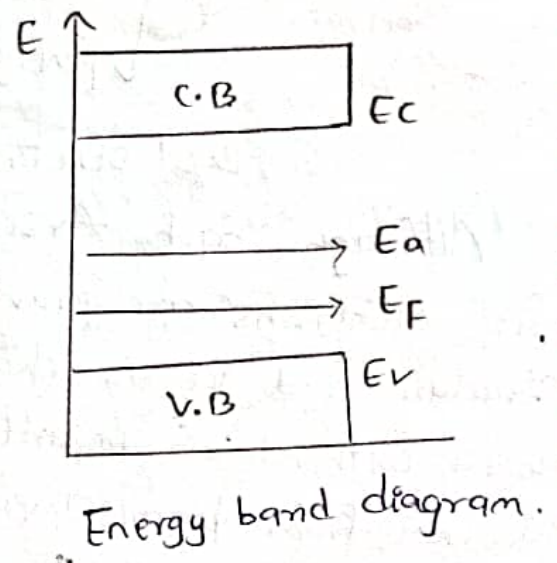 E
C.B
Ec
Ea
EF
Ev
V.B
Energy band diagram.